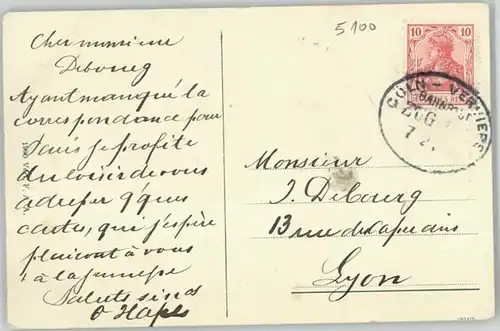 5100
Cher monsieur
Debourg
Ayant manqué la
correspondance pour
Paris je profite
du loisir de vous
adresser q'ques
cartes, qui j'espère
plairont à vous
à la
Saluts
10
CÖLN - VERVIERS
BAHNPOST
ZUG
7 2.
Monsieur
J. Debourg
13 rue
Lyon